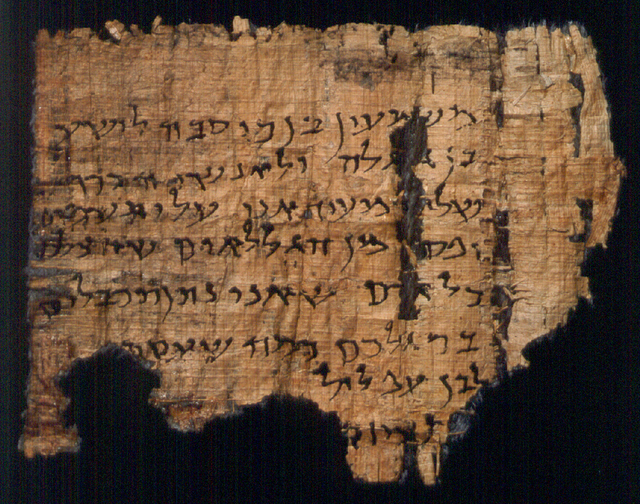 משמעון בן כוסבה לישע
בן גלגלה ולאנשי הכרך
שלום מעיד אני עלי תשמים
יפס מן הגללאים שהצלכם
כל אדם שאני נתן תכבלים
ברגלכם כמה שעסת
לבן עפלול